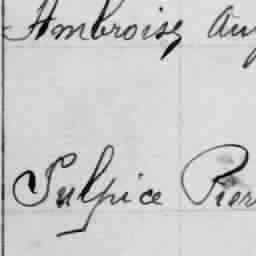 Ambroise Aug
Sulpice Pier